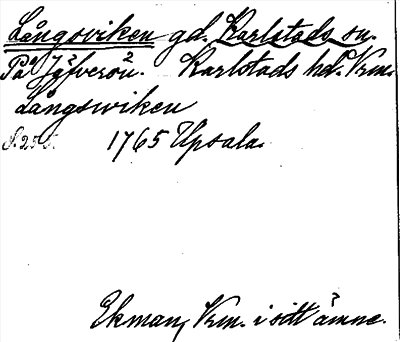 Långsviken gd. Karlstads sn.
På Jäfverön². Karlstads hd. Vrm.
Långswiken
S. 255. 1765 Upsala.
Ekman, Vrm. i sitt ämne.